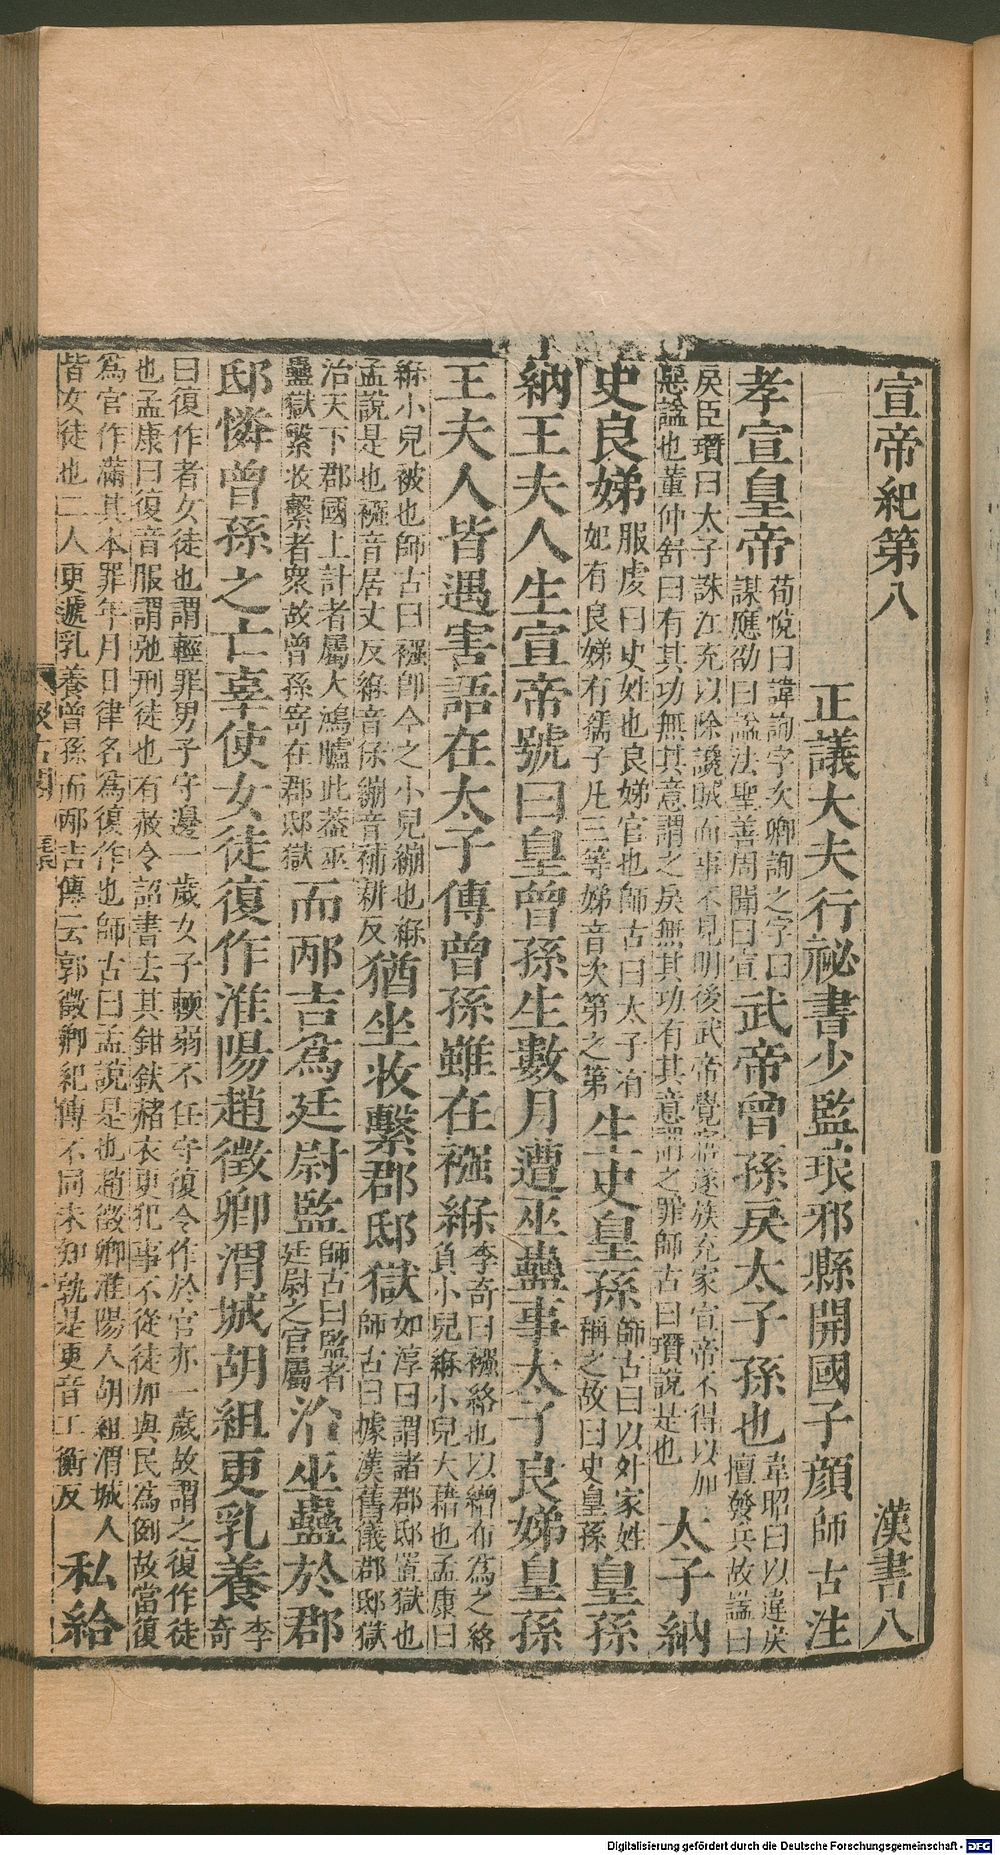 宣帝紀第八 漢書八
正議大夫行祕書少監琅邪縣開國子顏師古注
孝宣皇帝 荀悅曰諱詢字次卿詢之字曰謀應劭曰謚法聖善周聞曰宣 武帝曾孫戾太子孫也 韋昭曰以違戾擅發兵故謚曰
戾臣瓚曰太子誅江充以除讒賊而事不見明後武帝覺寤遂族充家宣帝不得以加惡謚也董仲舒曰有其功無其意謂之戾無其功有其意謂之罪師古曰瓚說是也 太子納
史良娣 服虔曰史姓也良娣官也師古曰太子有妃有良娣有孺子凡三等娣音次第之第 生史皇孫 師古曰以外家姓稱之故曰史皇孫 皇孫
納王夫人生宣帝號曰皇曾孫生數月遭巫蠱事太子良娣皇孫
王夫人皆遇害語在太子傳曾孫雖在襁緥 李奇曰襁絡也以繒布為之絡負小兒緥小兒大藉也孟康曰
緥小兒被也師古曰襁即今之小兒繃也緥孟說是也襁音居丈反緥音保繃音補耕反 猶坐收繫郡邸獄 如淳曰謂諸郡邸置獄也師古曰據漢舊儀郡邸獄
治天下郡國上計者屬大鴻臚此蓋巫蠱獄繁收繫者眾故曾孫寄在郡邸獄 而邴吉爲廷尉監 師古曰監者廷尉之官屬 治巫蠱於郡
邸憐曾孫之亡辜使女徒復作淮陽趙徵卿渭城胡組更乳養 李奇
曰復作者女徒也謂輕罪男子守邊一歲女子輭弱不任守復令作於官亦一歲故謂之復作徒也孟康曰復音服謂弛刑徒也有赦令詔書去其鉗釱赭衣更犯事不從徒加與民為例故當復
為官作滿其本罪年月日律名為復作也師古曰孟說是也趙徵卿淮陽人胡組渭城人皆女徒也二人更遞乳養曾孫而邴吉傳云郭徵卿紀傳不同未知孰是更音工衡反 私給
汲古閣
Digitalisierung gefördert durch die Deutsche Forschungsgemeinschaft - DFG